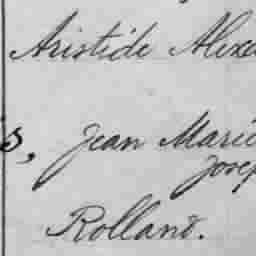 Aristide Alexa
s, Jean Marie
Josep
Rolland.